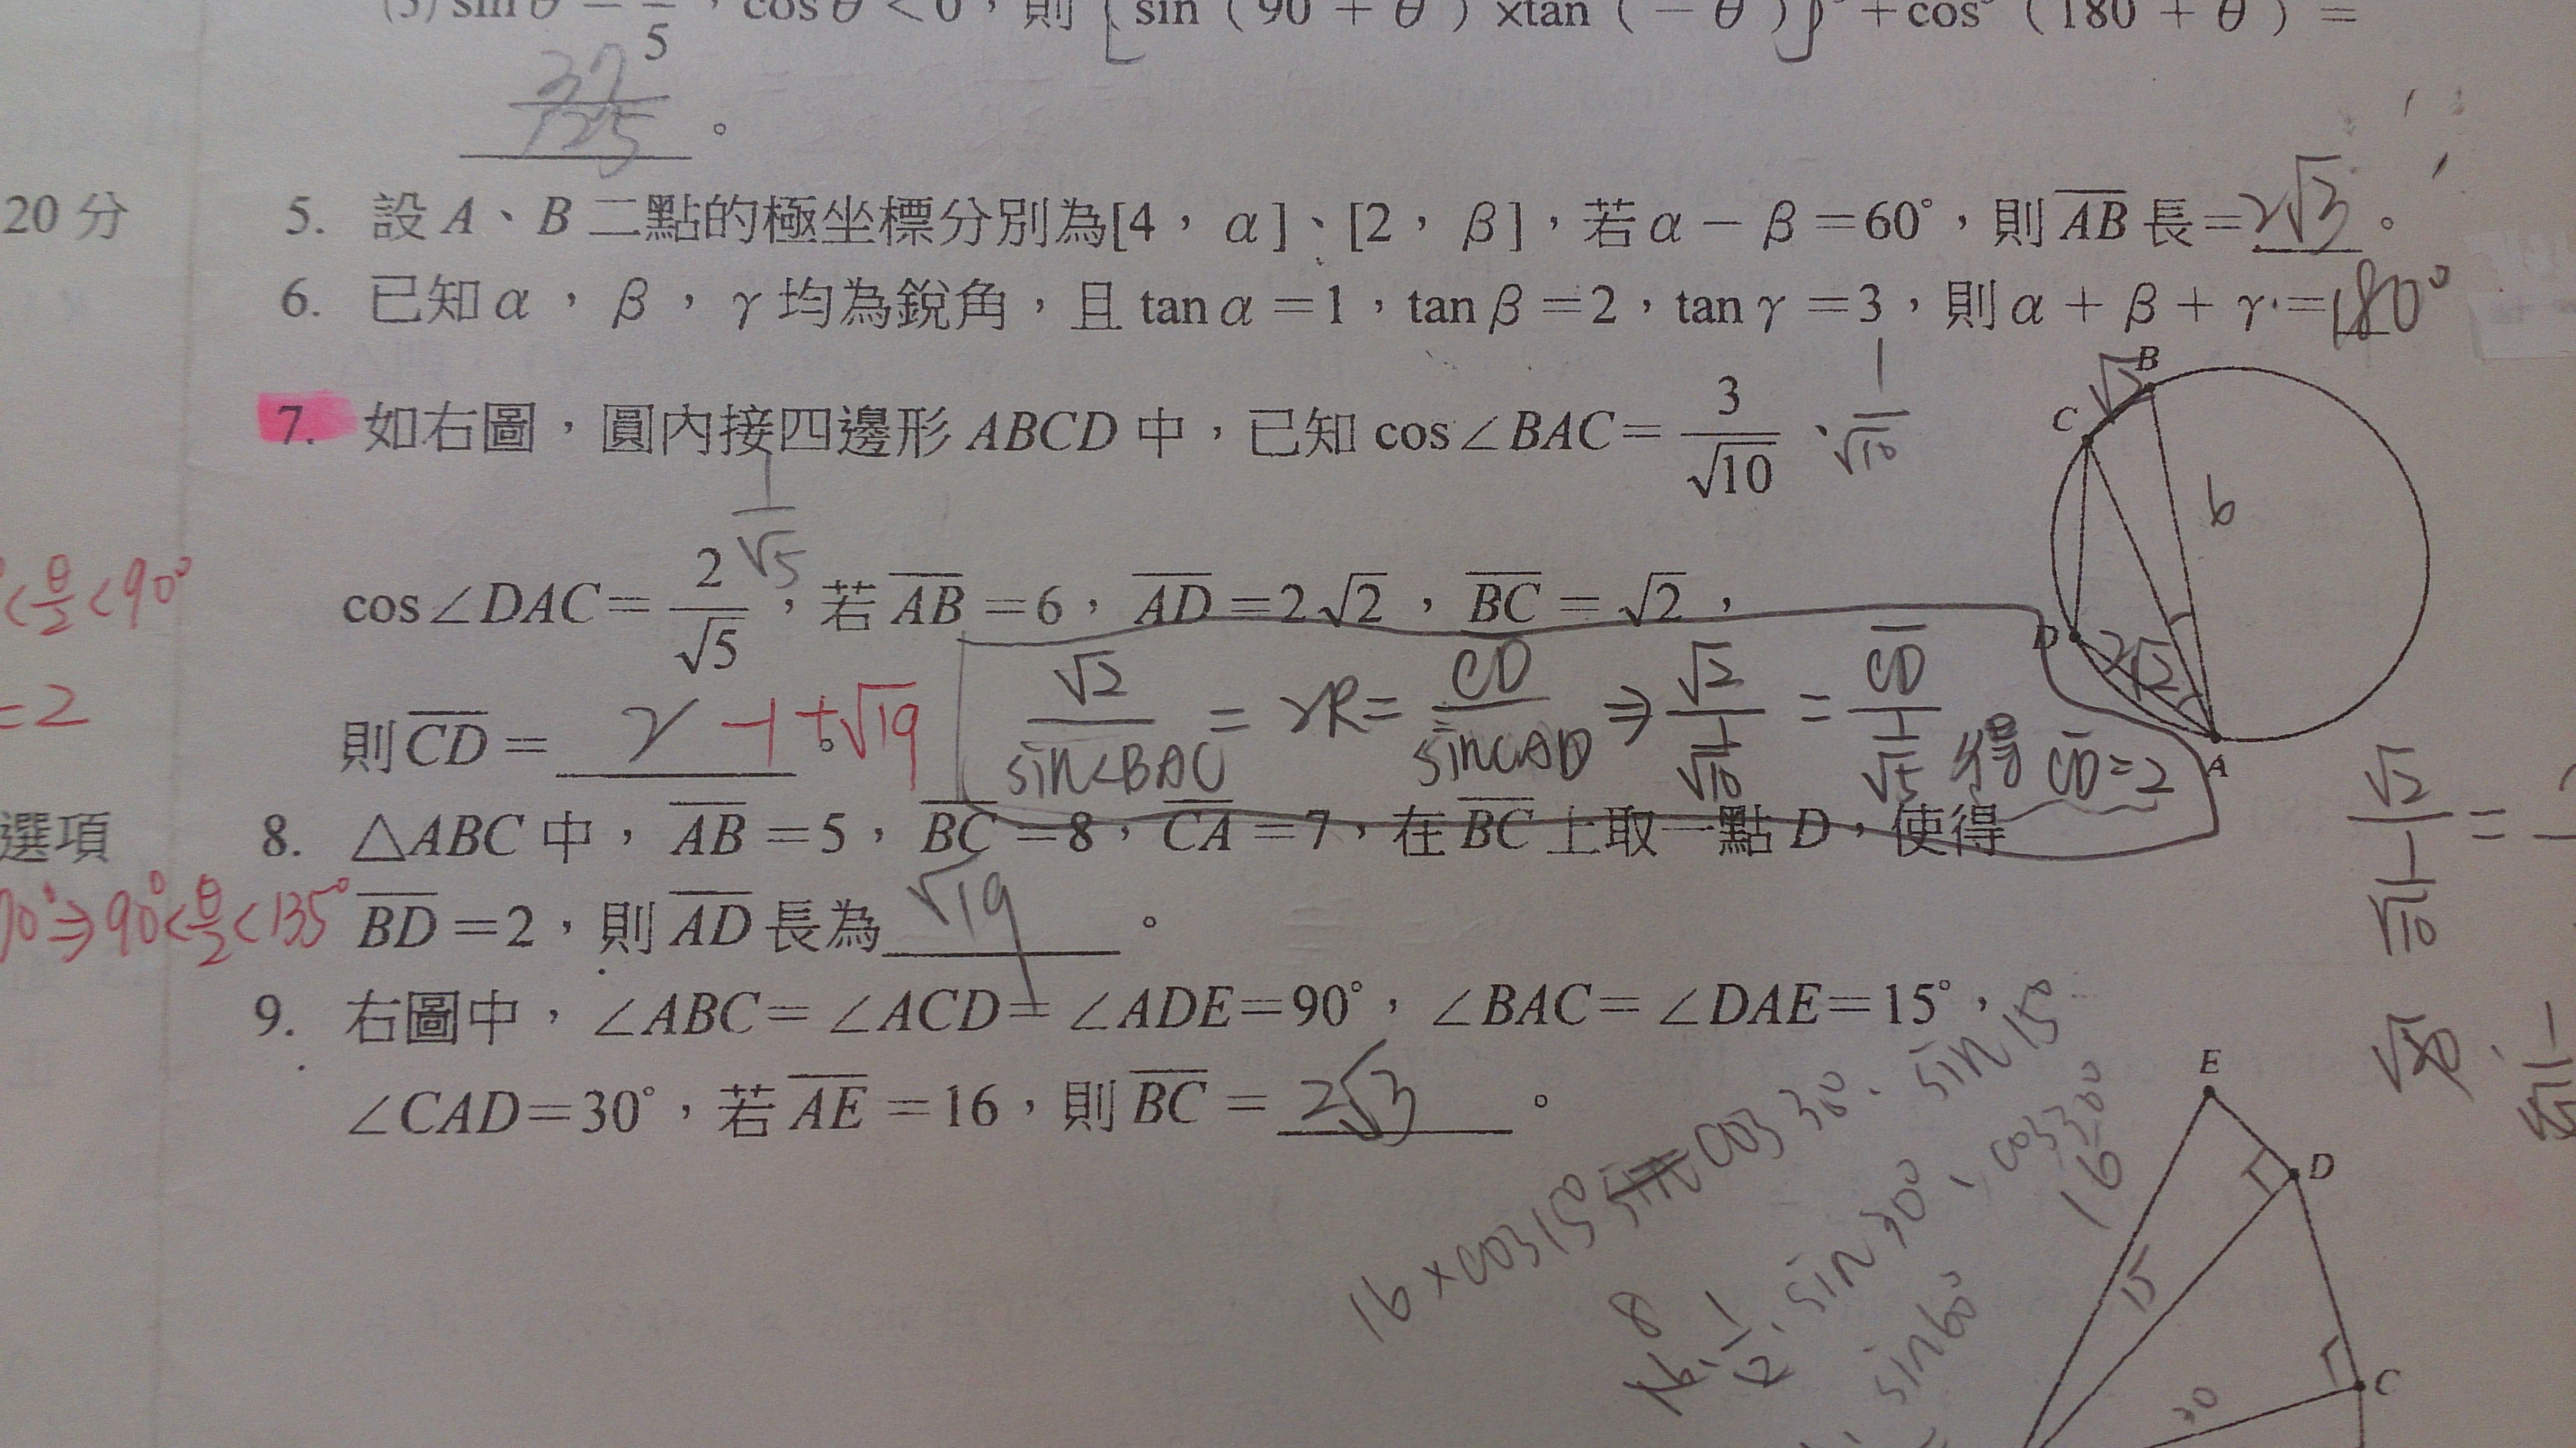 (3) sin θ = — 5，cos θ < 0，則 [sin（90 + θ）×tan（－θ）] + cos（180 + θ）=
37/125 。
20 分
5. 設 A、B 二點的極坐標分別為[4，α]、[2，β]，若 α－β=60°，則 AB 長=2√3。
6. 已知 α，β，γ 均為銳角，且 tan α =1，tan β =2，tan γ =3，則 α + β + γ =180°
7. 如右圖，圓內接四邊形 ABCD 中，已知 cos∠BAC= 3/√10、 1/√10
1/√5
cos∠DAC= 2/√5，若 AB =6，AD =2√2，BC = √2，
則 CD = 2 -1+√19 。
√2/sin∠BAC = 2R = CD/sinCAD ⇒ √2/(1/√10) = CD/(1/√5) 得 CD=2
B
√2
C
6
D
2√2
A
< θ/2 < 90°
=2
選項
90° ⇒ 90° < θ/2 < 135°
√2/(1/√10) =
8. △ABC 中，AB =5，BC =8，CA =7，在 BC 上取一點 D，使得
BD =2，則 AD 長為 √19 。
9. 右圖中，∠ABC= ∠ACD= ∠ADE=90°，∠BAC= ∠DAE=15°，
∠CAD=30°，若 AE =16，則 BC = 2√3 。
16×cos15° cos30°. sin15°
8
16. 1/2. sin30°. cos30°
16
sin60°
E
D
15
C
30